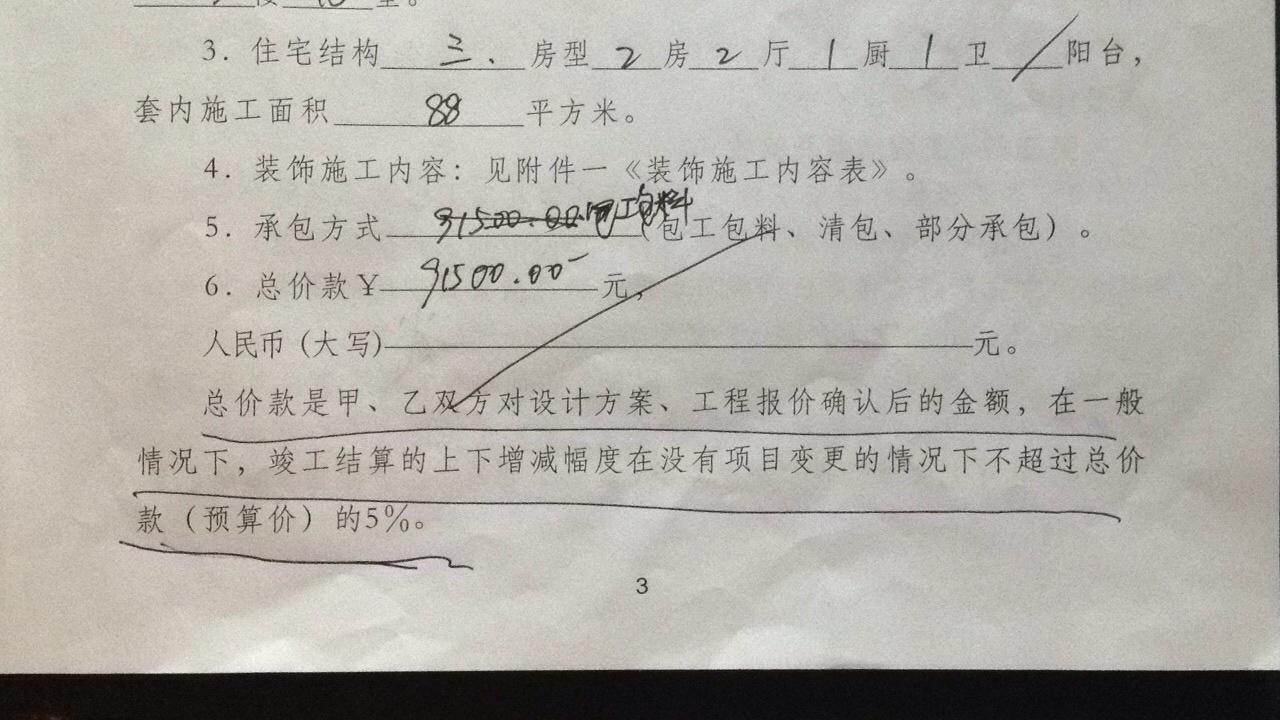 3. 住宅结构 三. 房型 2 房 2 厅 1 厨 1 卫 / 阳台，
套内施工面积 88 平方米。
4. 装饰施工内容：见附件一《装饰施工内容表》。
5. 承包方式 91500.00. 包工包料 (包工包料、清包、部分承包）。
6. 总价款￥ 91500.00 元，
人民币 (大写) 元。
总价款是甲、乙双方对设计方案、工程报价确认后的金额，在一般
情况下，竣工结算的上下增减幅度在没有项目变更的情况下不超过总价
款（预算价）的5%。
3